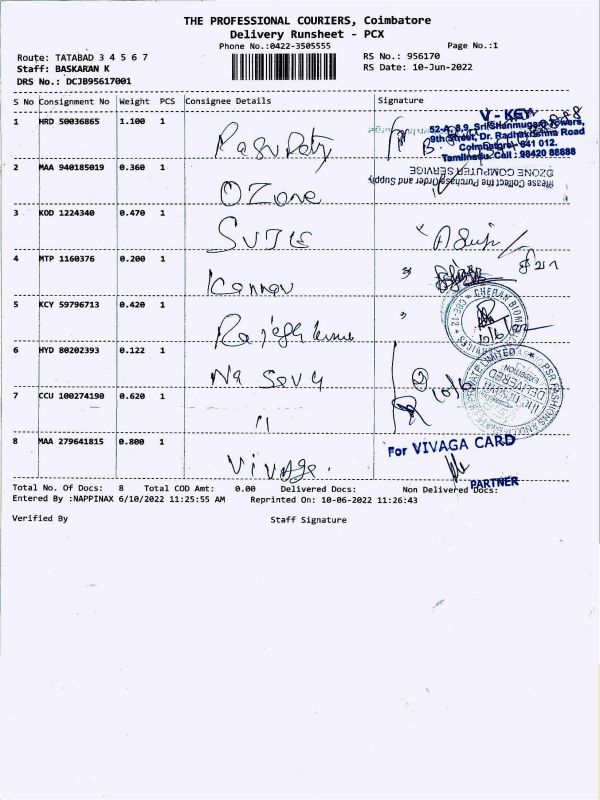 THE PROFESSIONAL COURIERS, Coimbatore
Delivery Runsheet - PCX
Phone No.:0422-3505555
Page No.:1
Route: TATABAD 3 4 5 6 7
RS No.: 956170
Staff: BASKARAN K
RS Date: 10-Jun-2022
DRS No.: DCJB95617001
S No Consignment No Weight PCS Consignee Details Signature
1 HRD 50036865 1.100 1
V - KEY
52-A, 8,9, Sri Shanmugam Towers,
9th Street, Dr. Radhakrishna Road
Coimbatore - 641 012.
Tamilnadu. Cell : 98420 88888
2 MAA 940185019 0.360 1 OZone
OZONE COMPUTER SERVICE
Please Collect the Purchase Order and Supply
3 KOD 1224340 0.470 1
4 MTP 1160376 0.200 1 Kannan
5 KCY 59796713 0.420 1
CHERAN
CBE-12
10/6/22
6 HYD 80202393 0.122 1
10/6
LIMITED
PSR FASHIONS
DELIVERED
7 CCU 100274190 0.620 1 "
8 MAA 279641815 0.800 1 Vivaga.
For VIVAGA CARD
PARTNER
Total No. Of Docs: 8 Total COD Amt: 0.00 Delivered Docs: Non Delivered Docs:
Entered By :NAPPINAX 6/10/2022 11:25:55 AM Reprinted On: 10-06-2022 11:26:43
Verified By Staff Signature